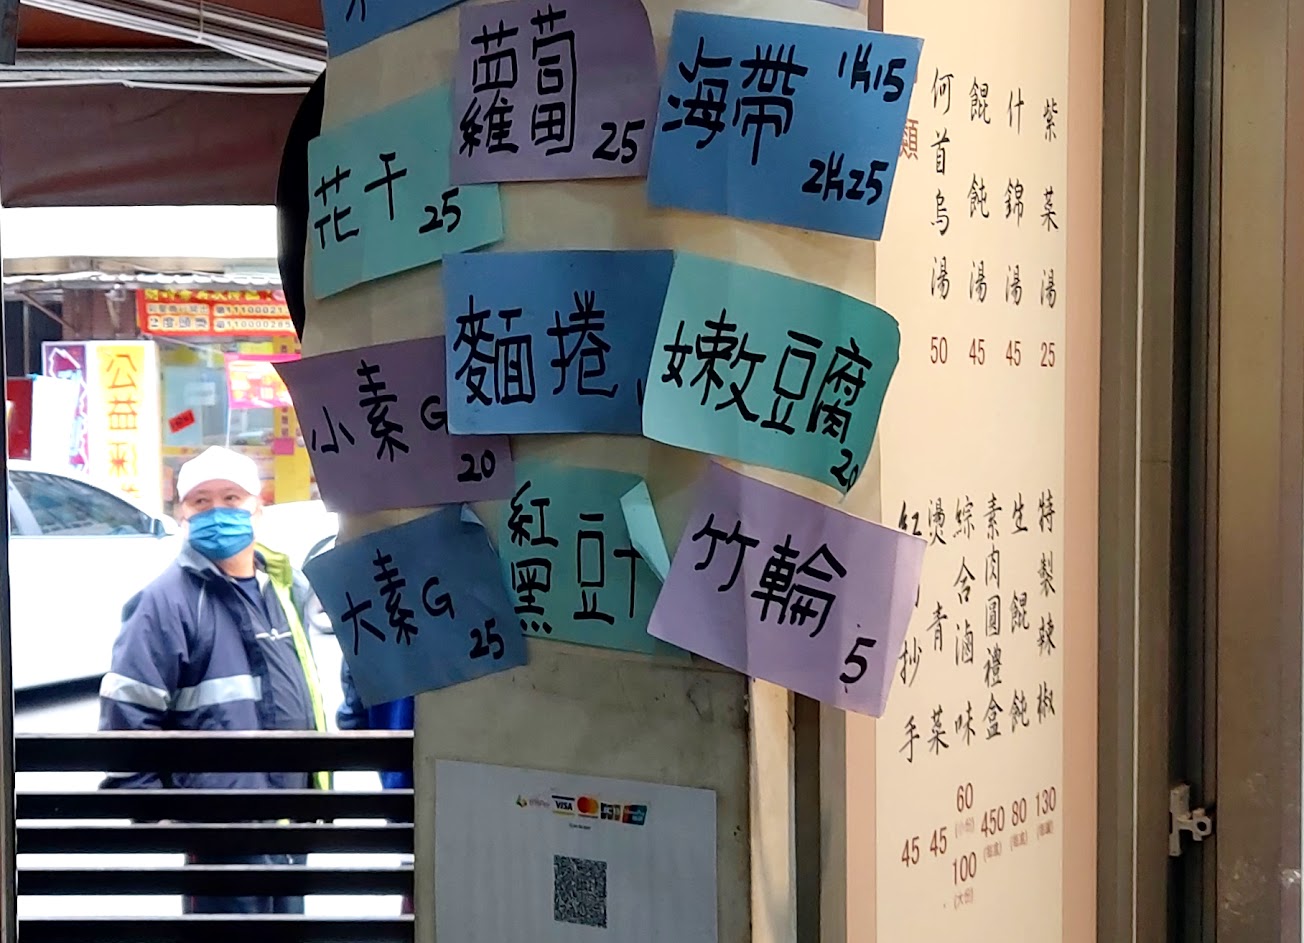 蘿蔔 25
海帶 1片15
2片25
花干 25
麵捲
嫩豆腐 20
小素G 20
紅黑豆干
竹輪 5
大素G 25
類
何首烏湯 50
餛飩湯 45
什錦湯 45
紫菜湯 25
紅油抄手 45
燙青菜 45
綜合滷味 60 (小份) 100 (大份)
素肉圓禮盒 450
生餛飩 80
特製辣椒 130
公益彩
VISA